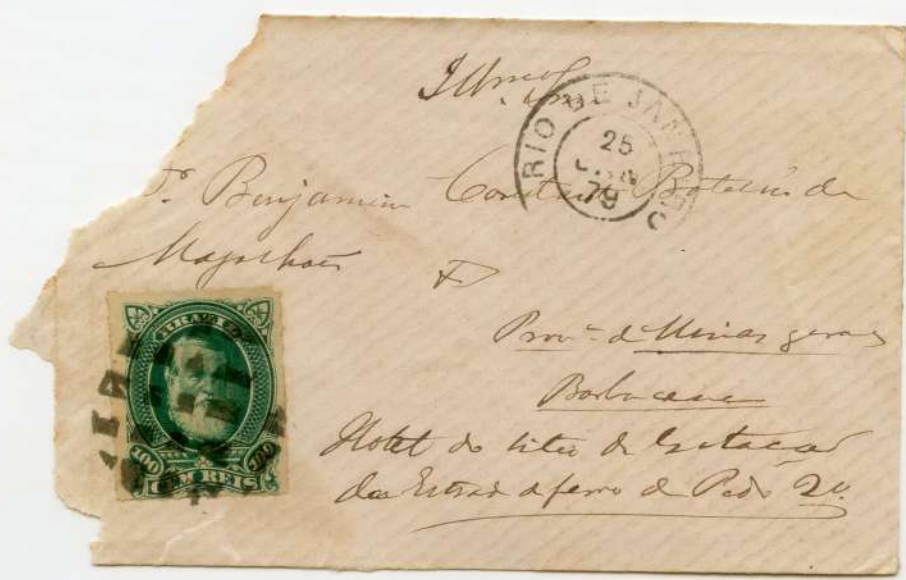 RIO DE JANEIRO
25
79
Dr. Benjamin Constant Botelho de
Magalhães
Provᵃ de Minas geraes
Barbacena
Hotel do sitio da Estação
da Estrada de ferro de Pedro 2º.
BRAZIL
100 100
CEM REIS